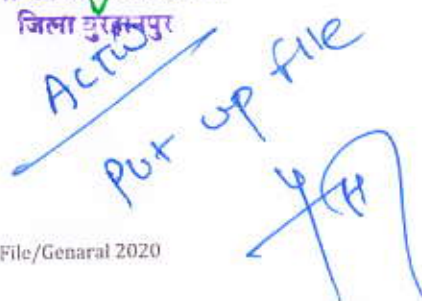 जिला बुरहानपुर
ACTW
Put up file
File/Genaral 2020